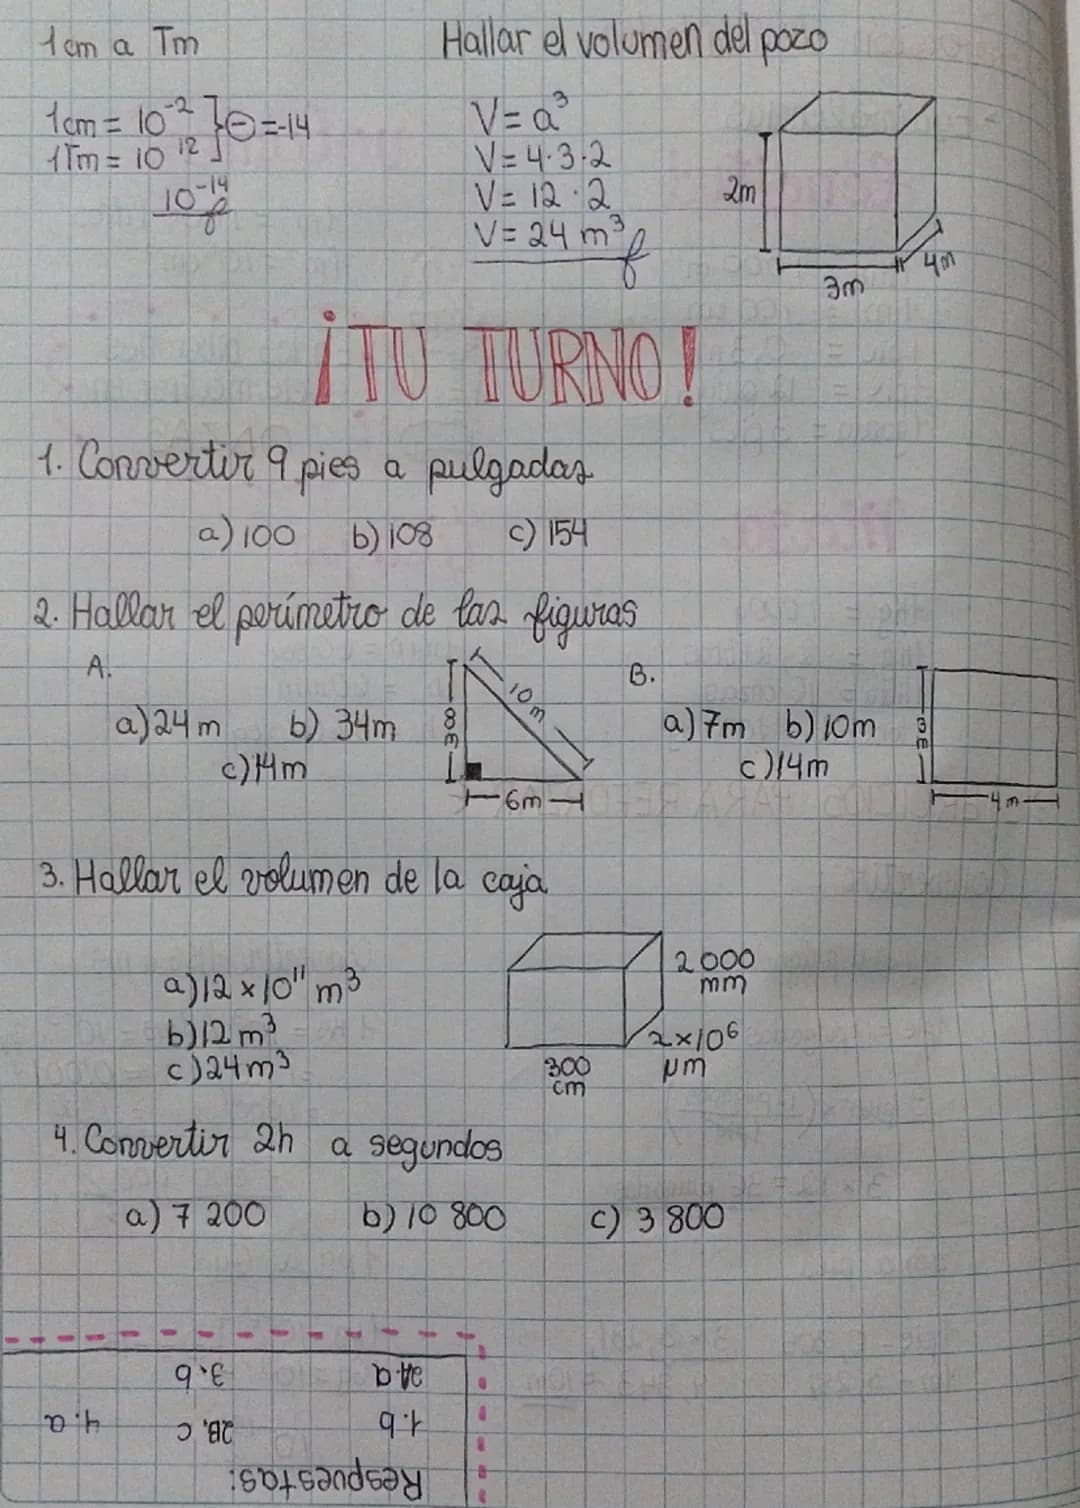 1cm a Tm
1cm = 10⁻² } ⊖ = -14
1Tm = 10¹²
10⁻¹⁴
Hallar el volumen del pozo
V = a³
V = 4·3·2
V = 12·2
V = 24 m³
2m
3m
4m
¡TU TURNO!
1. Convertir 9 pies a pulgadas
a) 100 b) 108 c) 154
2. Hallar el perímetro de las figuras
A.
a) 24 m b) 34m
c) 14m
8m
10m
6m
B.
a) 7m b) 10m
c) 14m
3m
4m
3. Hallar el volumen de la caja
a) 12 × 10¹¹ m³
b) 12 m³
c) 24 m³
2 000
mm
2×10⁶
μm
300
cm
4. Convertir 2h a segundos
a) 7 200 b) 10 800 c) 3 800
Respuestas:
1. b 2B. c 4. a
2A. a 3. b